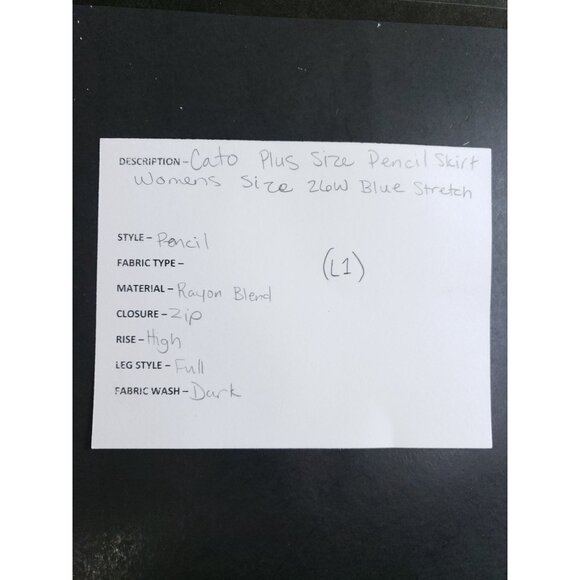 DESCRIPTION - Cato Plus Size Pencil Skirt
Womens Size 26W Blue Stretch
STYLE - Pencil
FABRIC TYPE -
(L1)
MATERIAL - Rayon Blend
CLOSURE - Zip
RISE - High
LEG STYLE - Full
FABRIC WASH - Dark